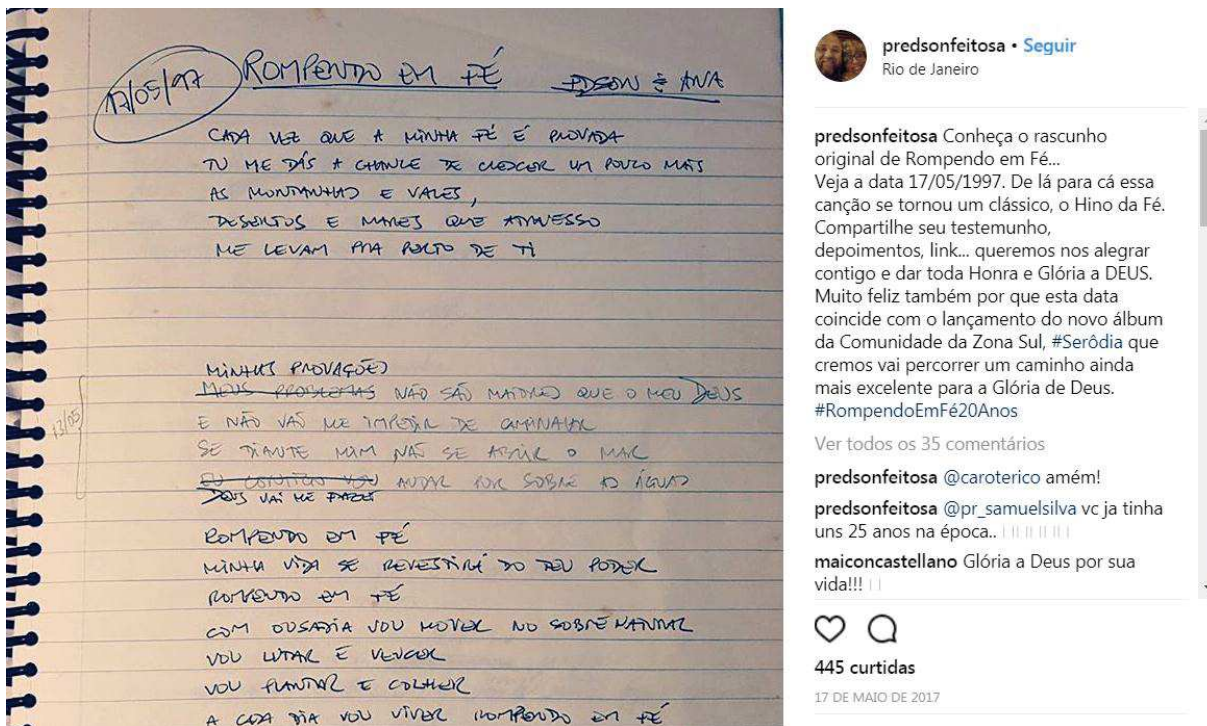 17/05/97
ROMPENDO EM FÉ
EDSON E ANA
CADA VEZ QUE A MINHA FÉ É PROVADA
TU ME DÁS A CHANCE DE CRESCER UM POUCO MAIS
AS MONTANHAS E VALES,
DESERTOS E MARES QUE ATRAVESSO
ME LEVAM PRA PERTO DE TI
MINHAS PROVAÇÕES
MEUS PROBLEMAS NÃO SÃO MAIORES QUE O MEU DEUS
E NÃO VÃO ME IMPEDIR DE CAMINHAR
13/05
SE DIANTE MIM NÃO SE ABRIR O MAR
EU CONTIGO VOU ANDAR POR SOBRE AS ÁGUAS
DEUS VAI ME FAZER
ROMPENDO EM FÉ
MINHA VIDA SE REVESTIRÁ DO TEU PODER
ROMPENDO EM FÉ
COM OUSADIA VOU MOVER NO SOBRENATURAL
VOU LUTAR E VENCER
VOU PLANTAR E COLHER
A CADA DIA VOU VIVER ROMPENDO EM FÉ
predsonfeitosa • Seguir
Rio de Janeiro
predsonfeitosa Conheça o rascunho
original de Rompendo em Fé...
Veja a data 17/05/1997. De lá para cá essa
canção se tornou um clássico, o Hino da Fé.
Compartilhe seu testemunho,
depoimentos, link... queremos nos alegrar
contigo e dar toda Honra e Glória a DEUS.
Muito feliz também por que esta data
coincide com o lançamento do novo álbum
da Comunidade da Zona Sul, #Serôdia que
cremos vai percorrer um caminho ainda
mais excelente para a Glória de Deus.
#RompendoEmFé20Anos
Ver todos os 35 comentários
predsonfeitosa @caroterico amém!
predsonfeitosa @pr_samuelsilva vc ja tinha
uns 25 anos na época..
maiconcastellano Glória a Deus por sua
vida!!!
445 curtidas
17 DE MAIO DE 2017